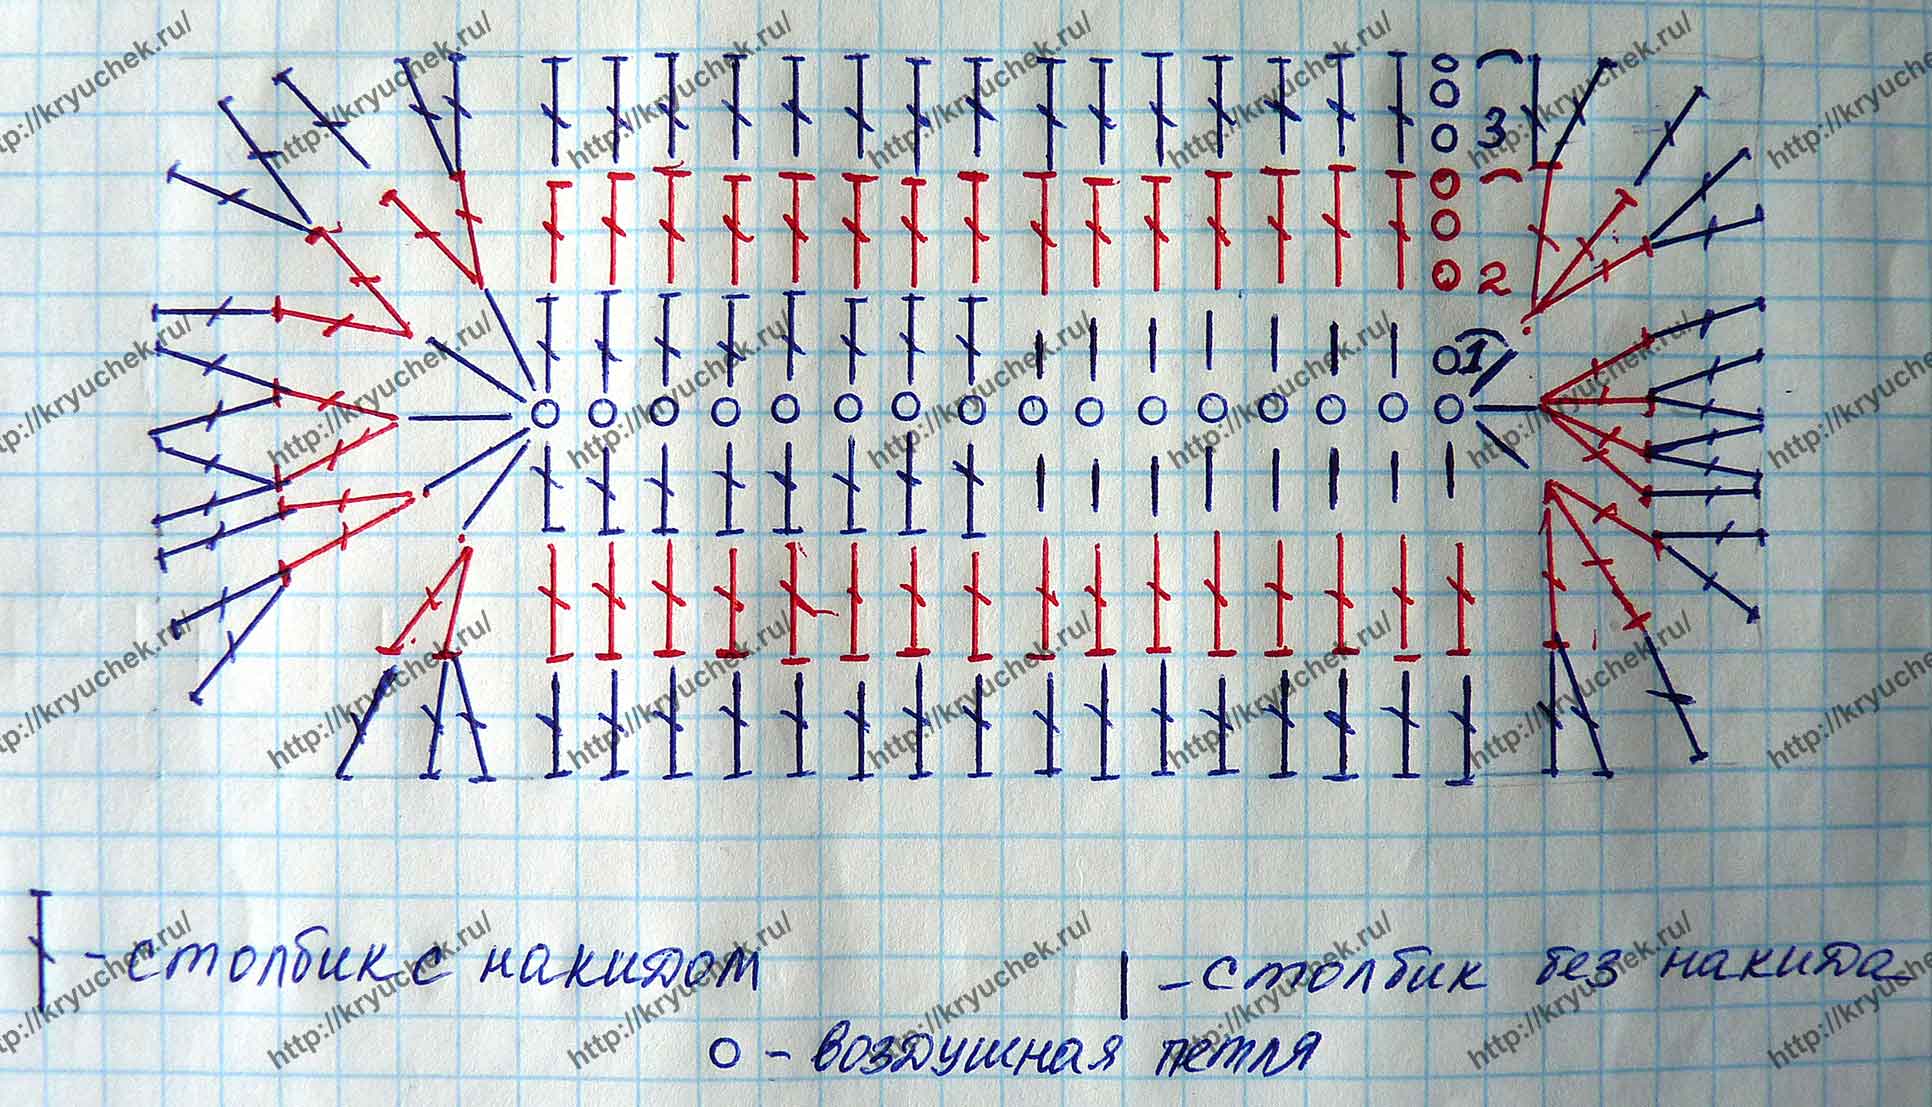 3
2
1
- столбик с накидом
- столбик без накида
о - воздушная петля
http://kryuchek.ru/